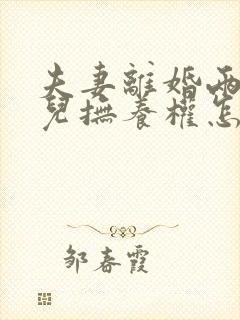 夫妻離婚兩
兒撫養權怎
邹春霞